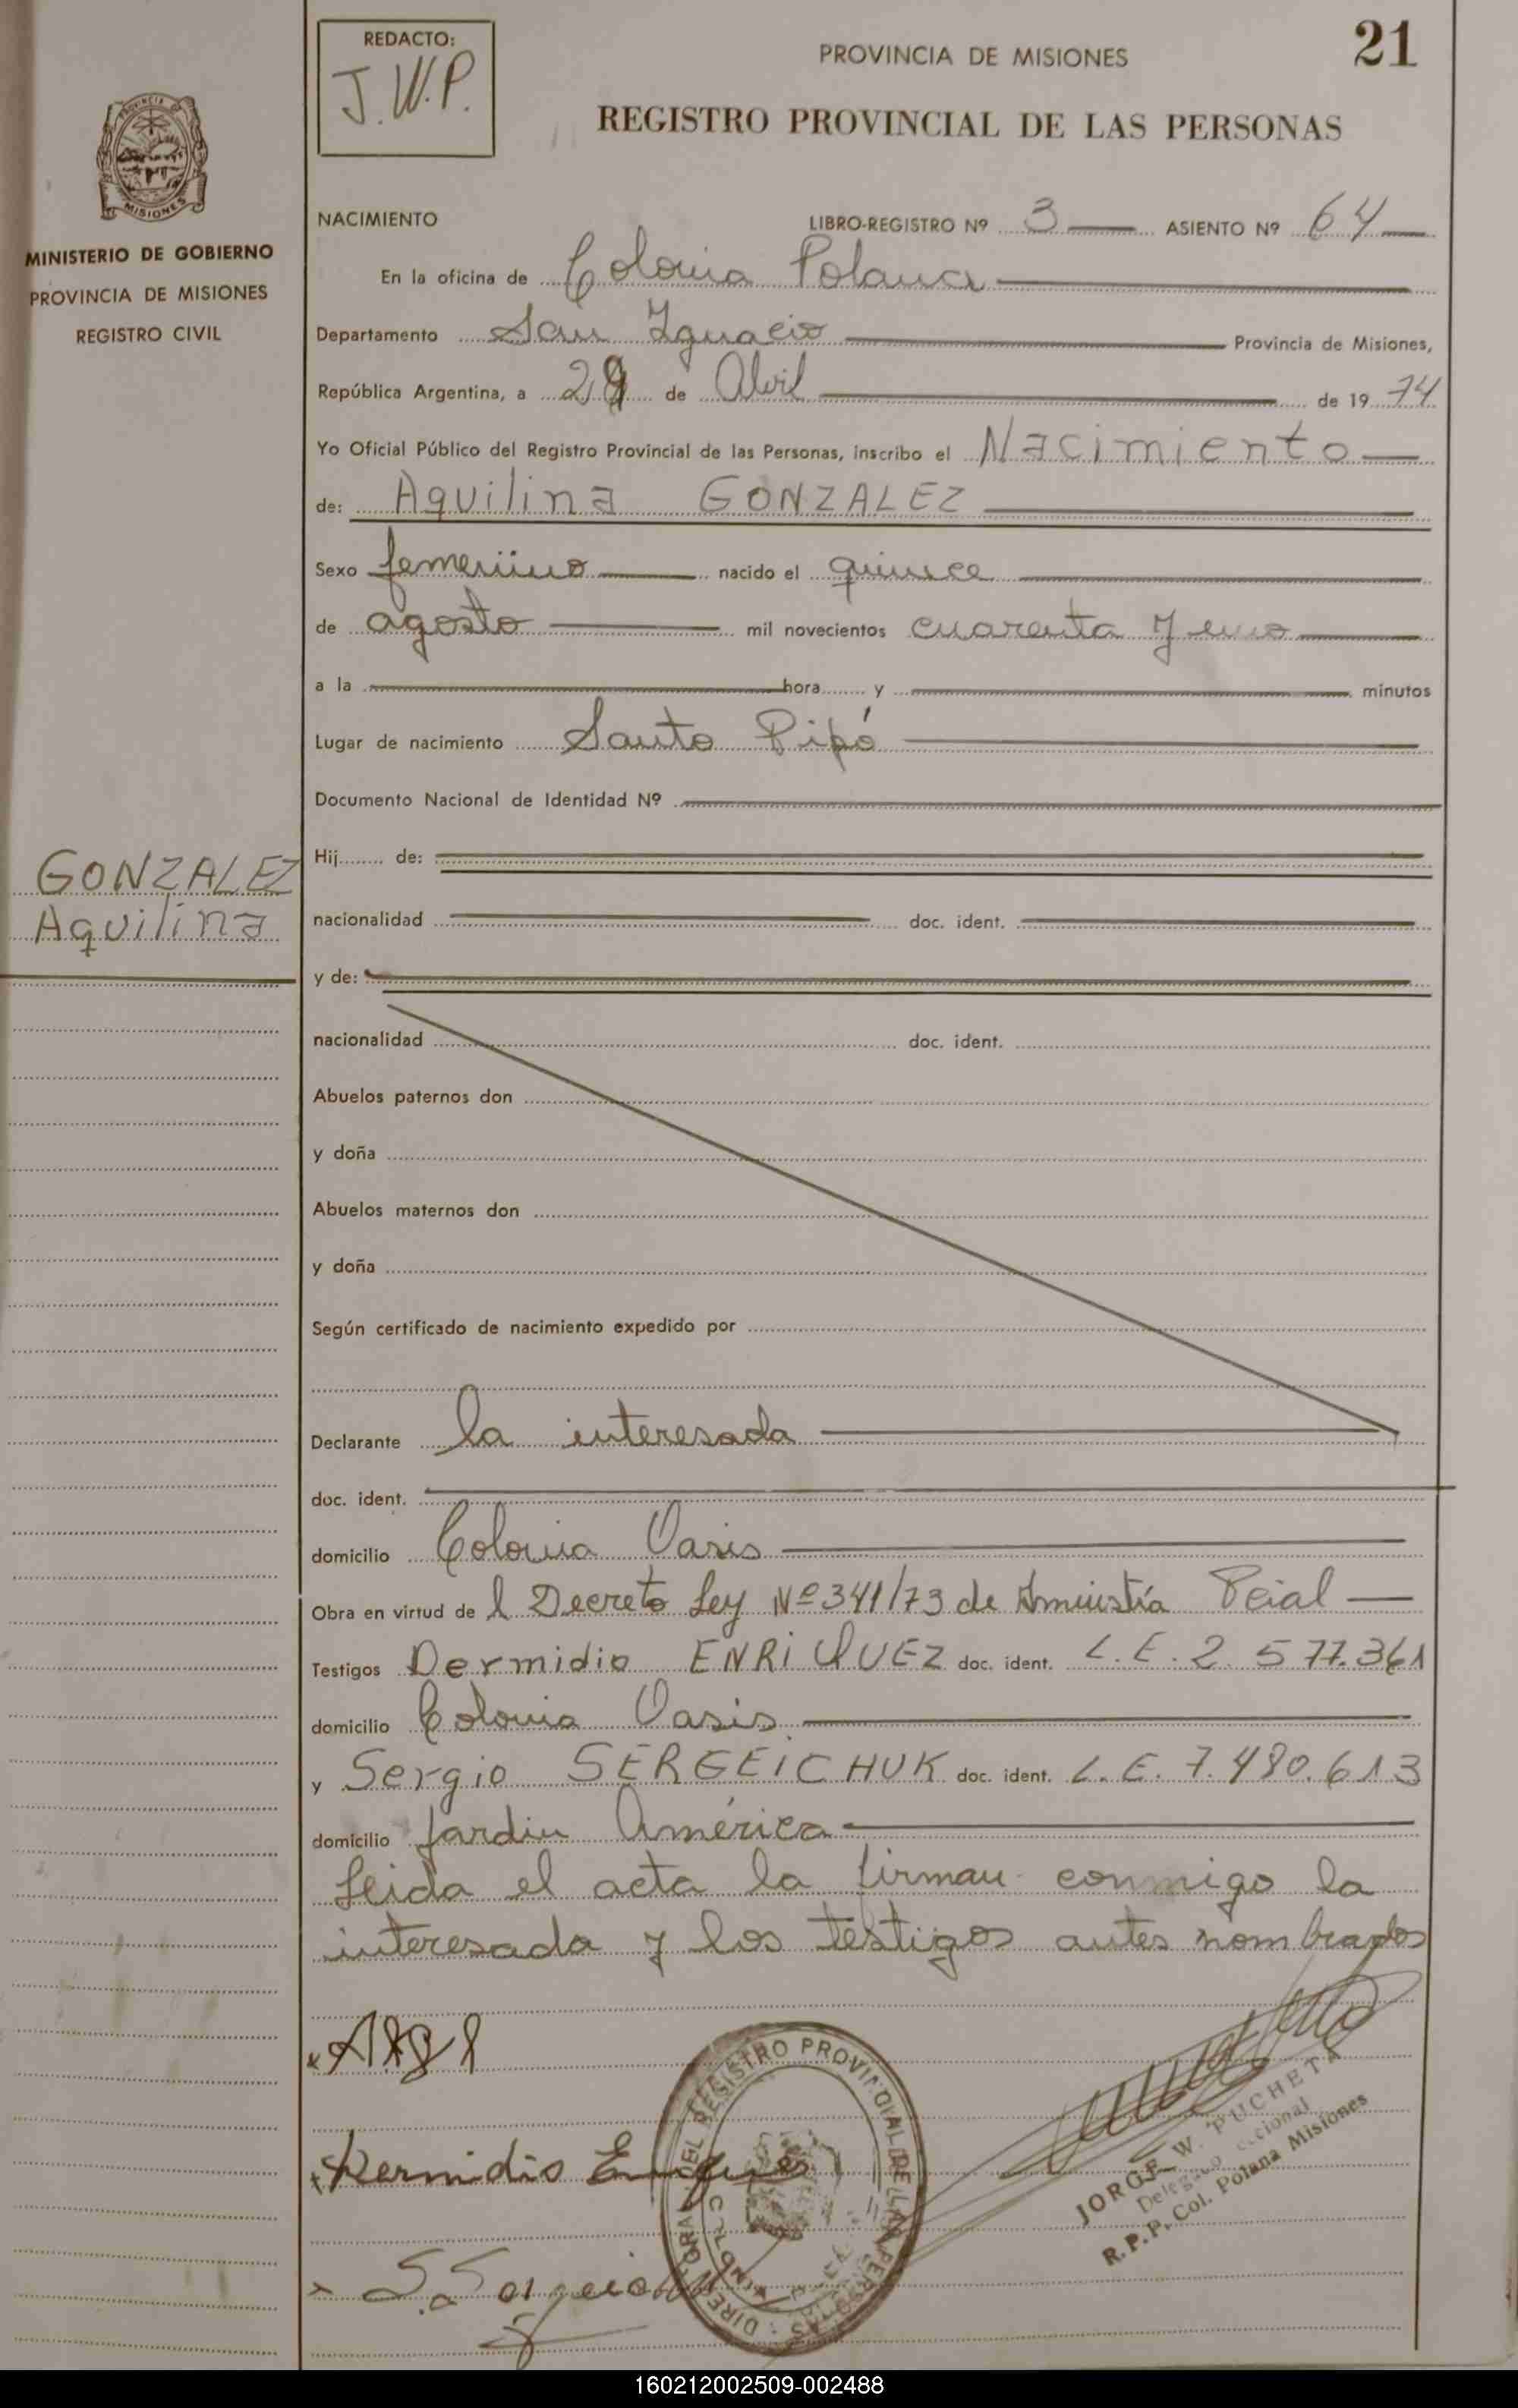 REDACTO:
J.W.P.
PROVINCIA DE MISIONES
21
REGISTRO PROVINCIAL DE LAS PERSONAS
MISIONES
MINISTERIO DE GOBIERNO
PROVINCIA DE MISIONES
REGISTRO CIVIL
NACIMIENTO LIBRO-REGISTRO Nº 3 ASIENTO Nº 64
En la oficina de Colonia Polana
Departamento San Ignacio Provincia de Misiones,
República Argentina, a 29 de Abril de 19 74
Yo Oficial Público del Registro Provincial de las Personas, inscribo el Nacimiento
de: Aquilina GONZALEZ
Sexo femenino nacido el quince
de agosto mil novecientos cuarenta y uno
a la hora y minutos
Lugar de nacimiento Santo Pipó
Documento Nacional de Identidad Nº
GONZALEZ
Aquilina
Hij de:
nacionalidad doc. ident.
y de:
nacionalidad doc. ident.
Abuelos paternos don
y doña
Abuelos maternos don
y doña
Según certificado de nacimiento expedido por
Declarante la interesada
doc. ident.
domicilio Colonia Oasis
Obra en virtud de l Decreto Ley Nº 341/73 de Amnistía Pcial
Testigos Dermidio ENRIQUEZ doc. ident. L.E. 2.577.361
domicilio Colonia Oasis
y Sergio SERGEICHUK doc. ident. L.E. 7.480.613
domicilio Jardin América
Leida el acta la firman conmigo la
interesada y los testigos antes nombrados
Dermidio
REGISTRO PROVINCIAL DE LAS PERSONAS
JORGE W. PUCHETA
R.P.P. Col. Polana Misiones
160212002509-002488